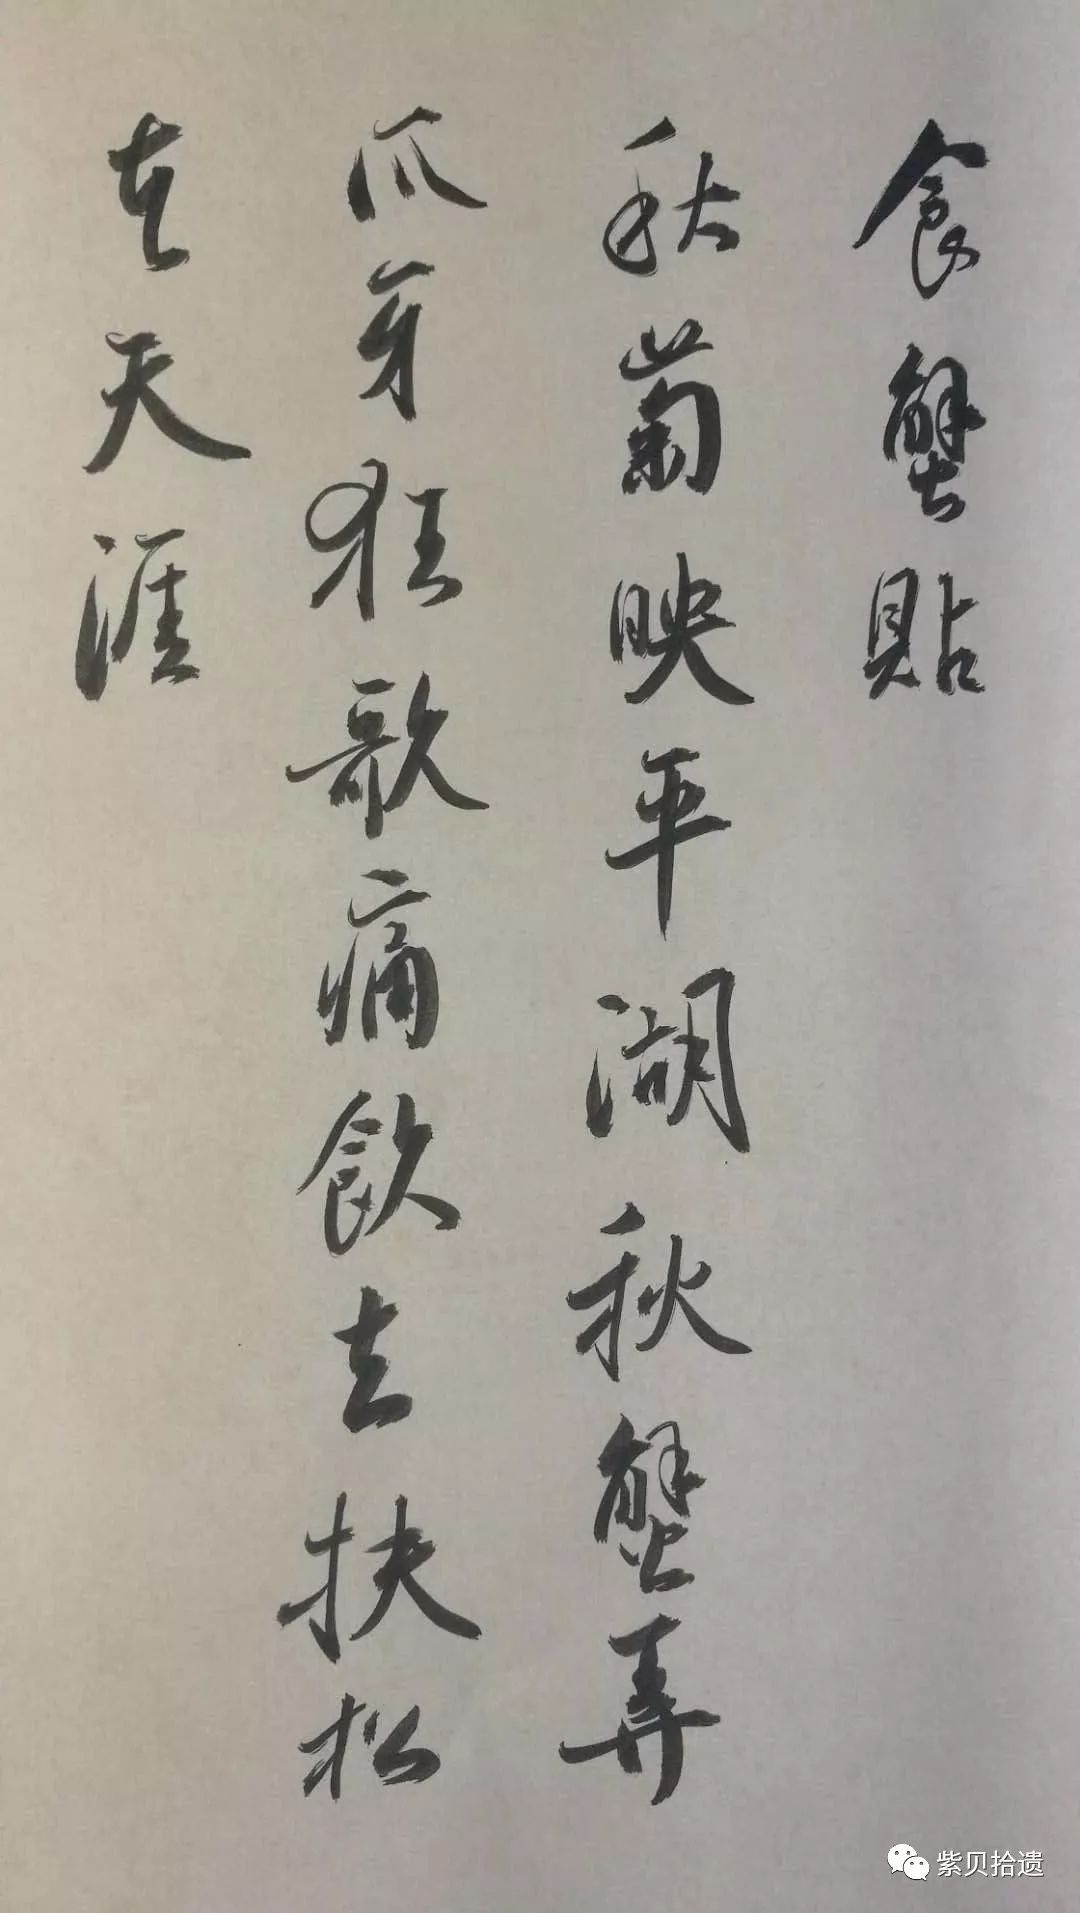 食蟹貼
秋菊映平湖秋蟹弄
爪牙狂歌痛飲去扶松
在天涯
紫贝拾遗